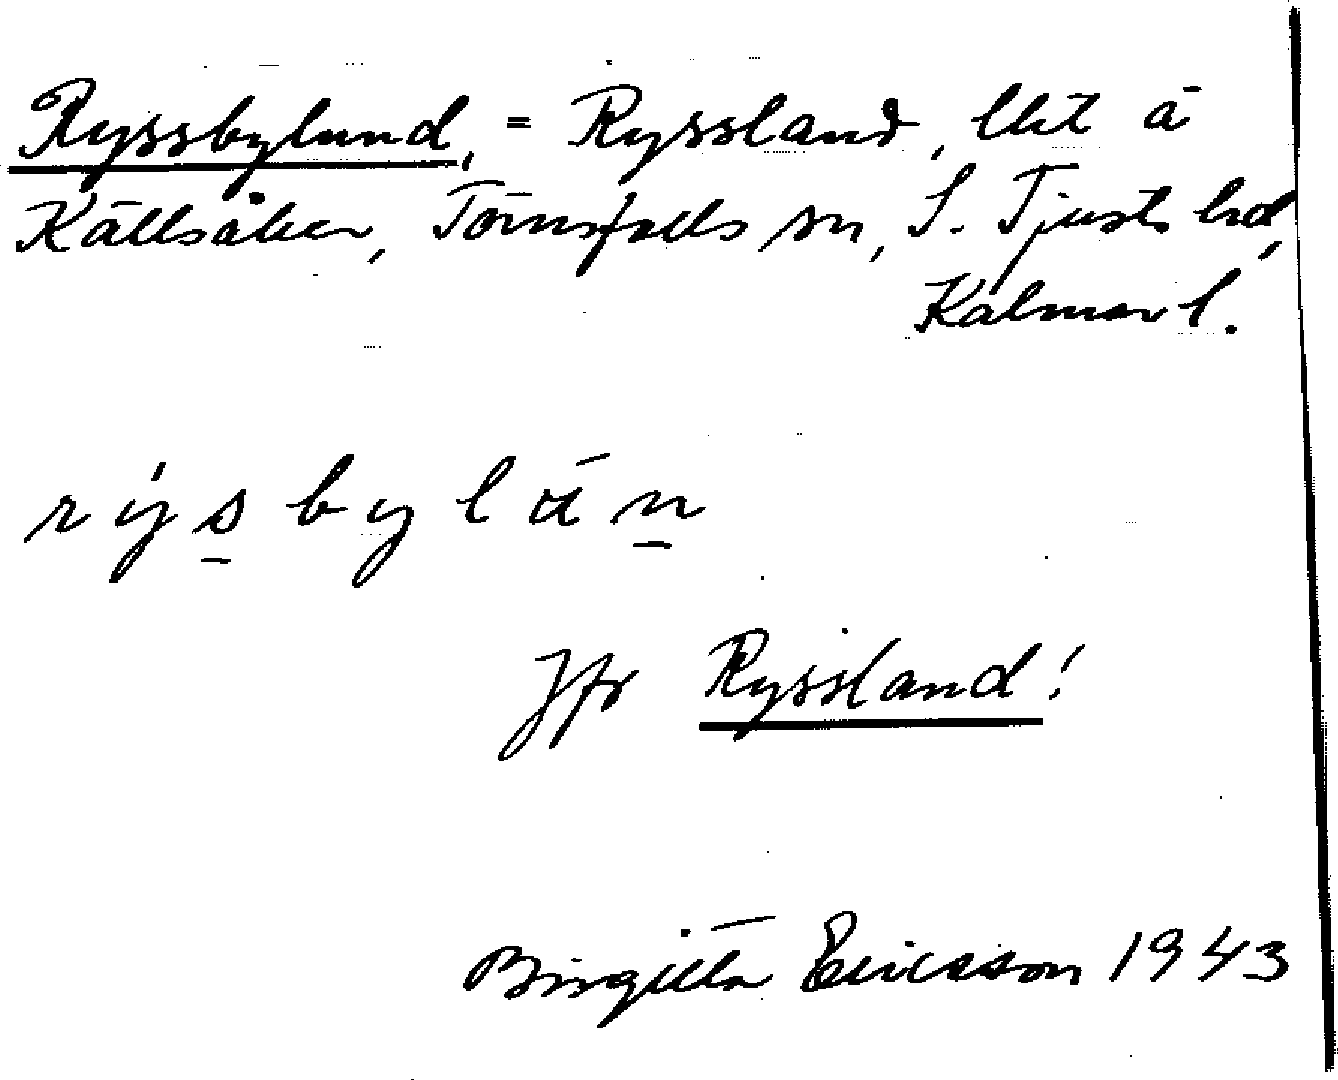 Ryssbylund, = Ryssland, lht å
Källsåker, Törnsfalls sn, S. Tjusts hd,
Kalmar l.
rýsbylán
Jfr Ryssland!
Birgitta Ericsson 1943